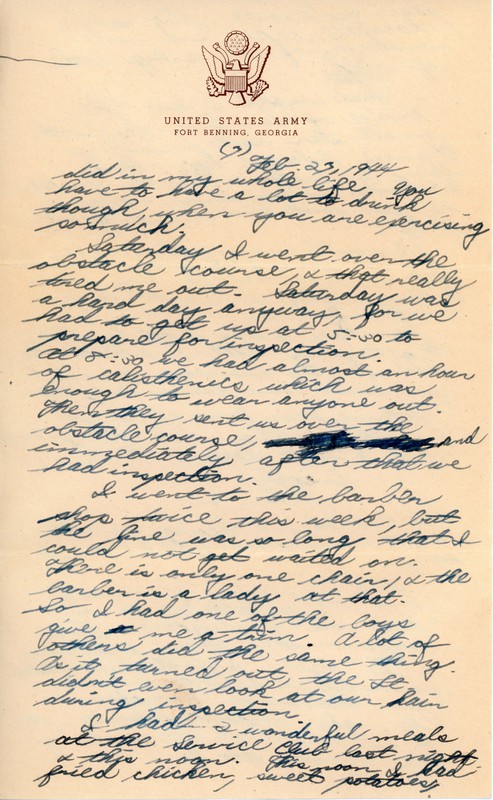 UNITED STATES ARMY
FORT BENNING, GEORGIA
Feb. 23, 1944
did in my whole life. You
have to have a lot to drink
though when you are exercising
so much.
Saturday I went over the
obstacle course, & that really
tired me out. Saturday was
a hard day anyway, for we
had to get up at 5:30 to
prepare for inspection.
At 8:30 we had almost an hour
of calisthenics which was
enough to wear anyone out.
Then they sent us over the
obstacle course, and
immediately after that we
had inspection.
I went to the barber
shop twice this week, but
the line was so long that I
could not get waited on.
There is only one chair, & the
barber is a lady at that.
So I had one of the boys
give me a trim. A lot of
others did the same thing.
As it turned out, the Lt.
didn't even look at our hair
during inspection.
I had 2 wonderful meals
at the Service Club last night
& this noon. This noon I had
fried chicken, sweet potatoes,